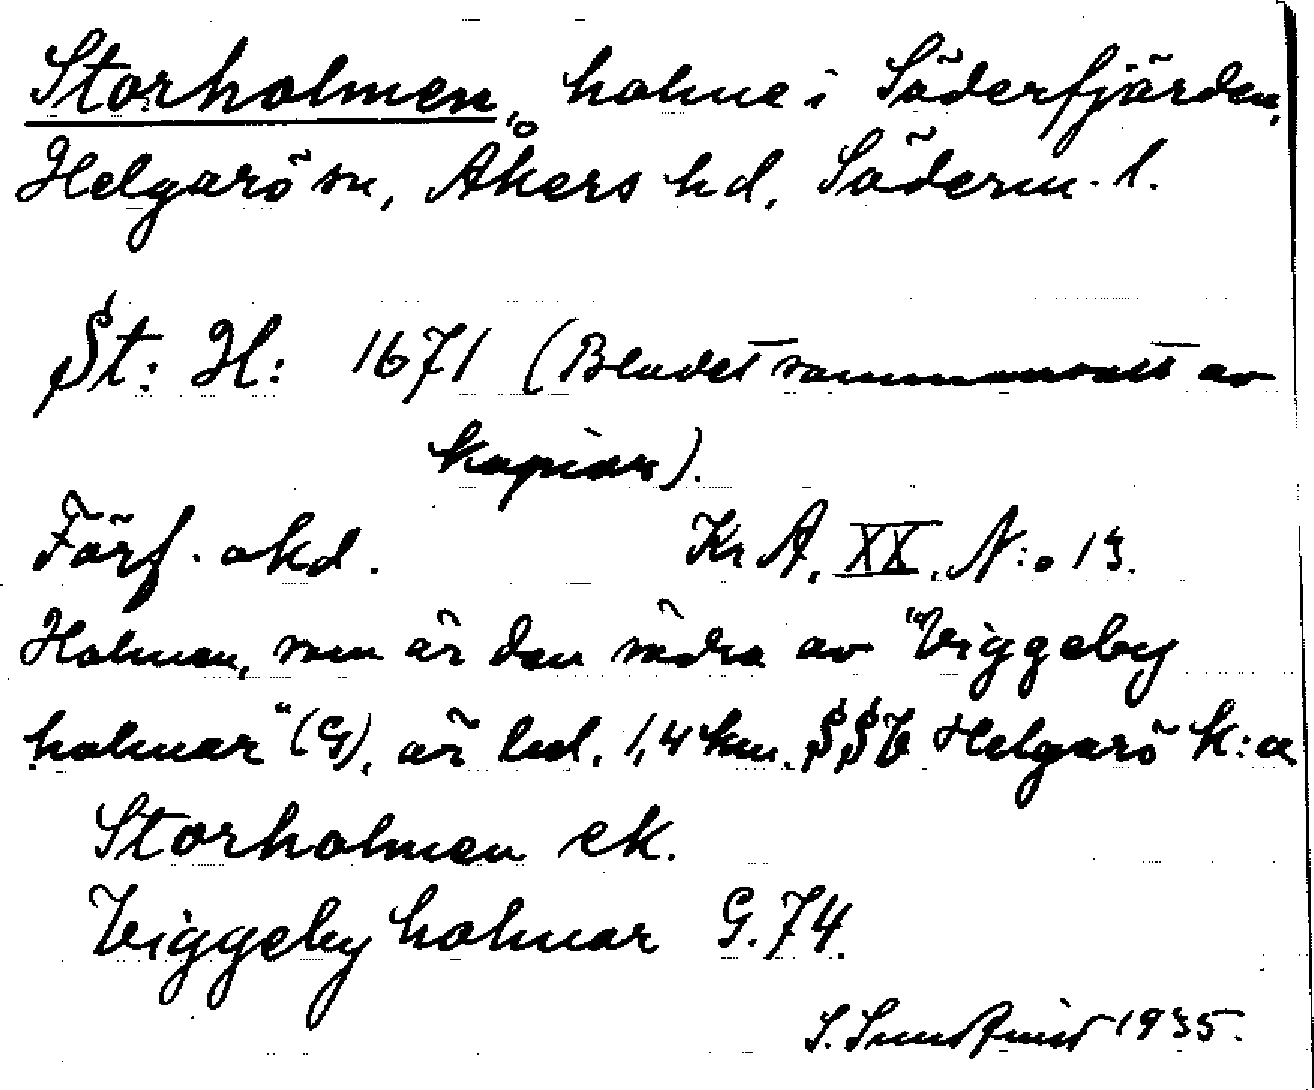 Storholmen, holme i Söderfjärden,
Helgarö sn, Åkers hd, Söderm. l.
St: H: 1671 (Bladet sammansatt av
kopior).
Förf. okd. Kr A, XX, N:o 13.
Holmen, som är den södra av "Viggeby
holmar" (G), är bel. 1,4 km. SSV Helgarö k:a
Storholmen ek.
Viggeby holmar G. 74.
S. Sundqvist 1935.